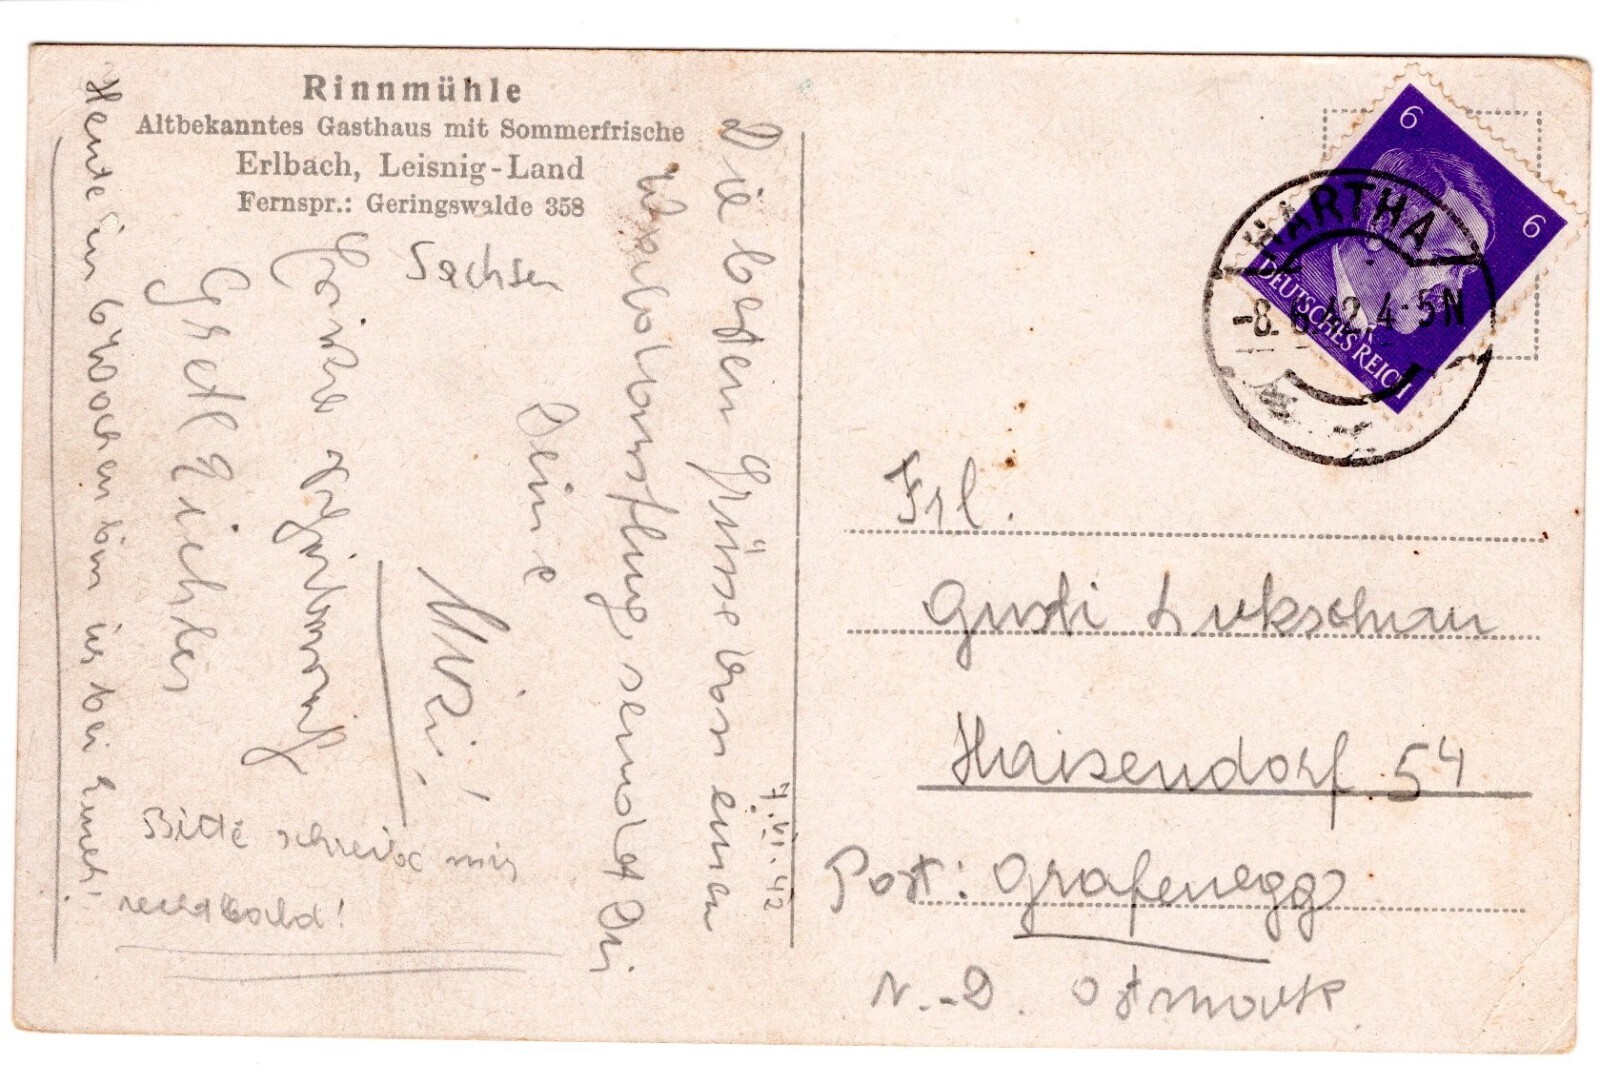 Rinnmühle
Altbekanntes Gasthaus mit Sommerfrische
Erlbach, Leisnig-Land
Fernspr.: Geringswalde 358
Sachsen
7.VI.42
Die besten Grüsse von einen
sendet Dir
Deine
Mizi!
Gretl Richter
Bitte schreibe mir
recht bald!
Heute in 6 Wochen bin ich bei Euch!
6
6
DEUTSCHES REICH
HARTHA
-8.6.42.4-5N
Frl.
Gusti Lukschan
Haisendorf 54
Post: Grafenegg
N.-D. Ostmark